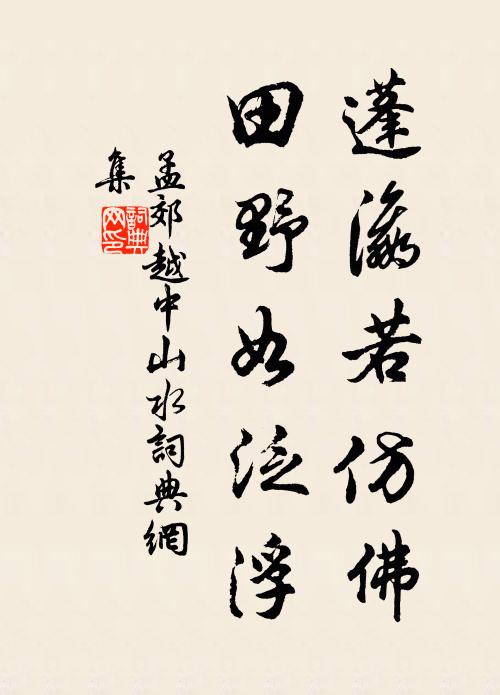 蓬瀛若仿佛
田野如泛浮
孟郊越中山水詞典網
集
詞典
网印